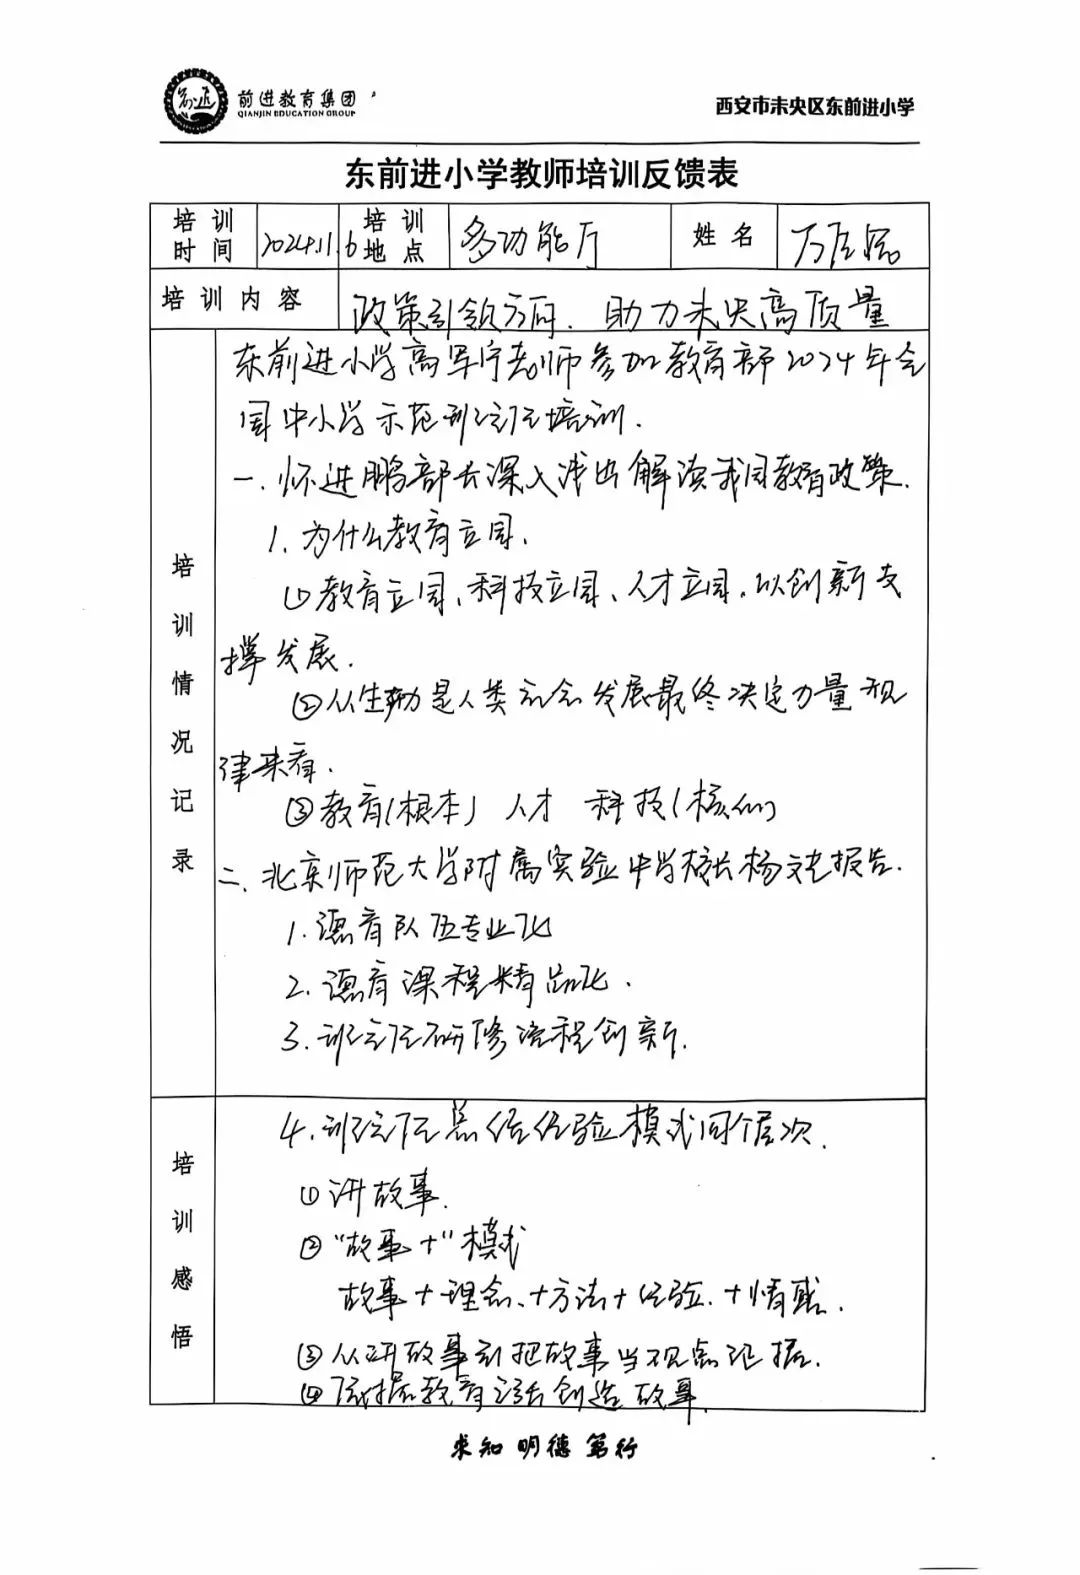 前进教育集团
QIANJIN EDUCATION GROUP
西安市未央区东前进小学
东前进小学教师培训反馈表
培训时间 2024.11.6 培训地点 多功能厅 姓名
培训内容 政策引领方向、助力未央高质量
培训情况记录
东前进小学高军宁老师参加教育部2024年全
国中小学示范班主任培训.
一.怀进鹏部长深入浅出解读我国教育政策.
1.为什么教育立国.
①教育立国、科技立国、人才立国.以创新支
撑发展.
②从生动是人类社会发展最终决定力量规
律来看.
③教育(根本) 人才 科技(核心)
二.北京师范大学附属实验中学校长杨文芝报告.
1.德育队伍专业化
2.德育课程精品化.
3.班主任研修流程创新.
培训感悟
4.班主任总结经验模式 层次.
①讲故事.
②“故事+”模式
故事+理念、+方法+经验.+情感.
③从讲故事到把故事当观点证据.
④依据教育 创造故事.
求知 明德 笃行